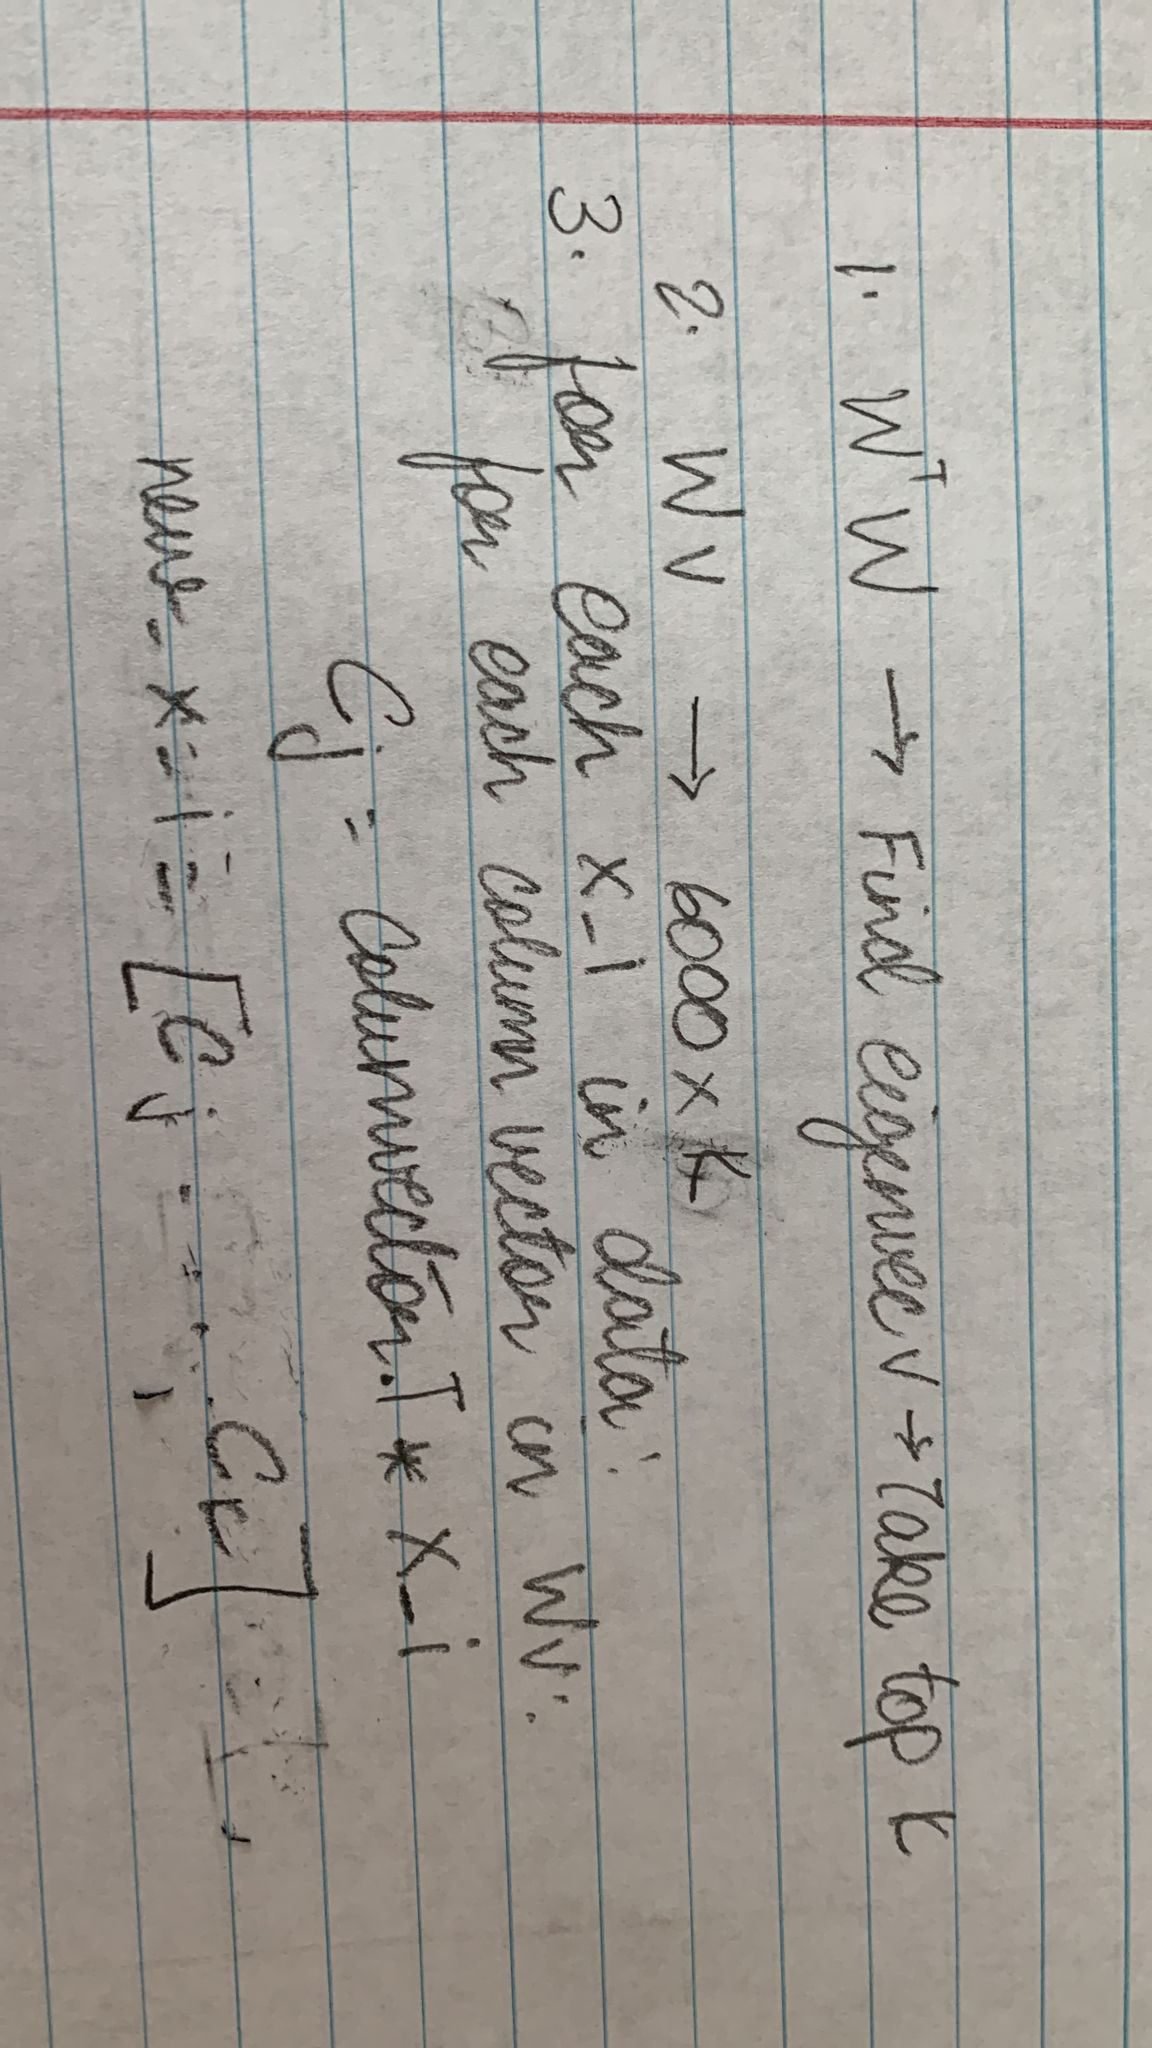 1. WᵀW → Find eigenvec v → Take top k
2. Wv → 6000 x k
3. for each x_i in data:
for each column vector in Wv:
Cj = columnvector.T * x_i
new_x_i = [Cj - . . . Ck]